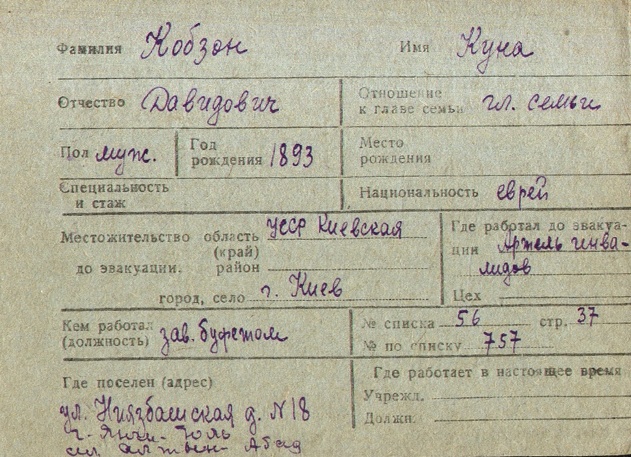 Фамилия Кобзон Имя Куна
Отчество Давидович Отношение к главе семьи гл. семьи
Пол муж. Год рождения 1893 Место рождения
Специальность и стаж Национальность еврей
Местожительство до эвакуации. область (край) УССР Киевская
район
город, село г. Киев
Где работал до эвакуации Артель инвалидов
Цех
Кем работал (должность) зав. буфетом № списка 56 стр. 37
№ по списку 757
Где поселен (адрес) Где работает в настоящее время
ул. Ниязбашская д. N 18 Учрежд.
г. Янги-Юль Должн.